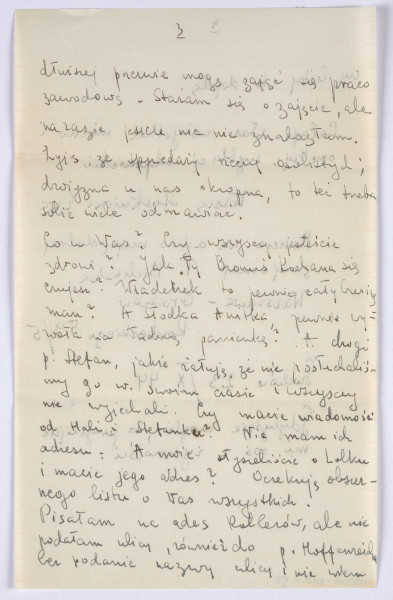 3
dłuższej przerwie mogę zająć się pracą
zawodową - Staram się o zajęcie, ale
na razie jeszcze nic nie znalazłam.
Żyję ze sprzedaży rzeczy osobistych;
drożyzna u nas okropna, to też trzeba
sobie wiele odmawiać.
Co u Was? Czy wszyscy jesteście
zdrowi? Jak Ty Bronuś Kochana się
czujesz? Władelek to pewnie cały
man? A Słodka Anitka, pewnie wy-
rosła na ładną panienkę? A drogi
p. Stefan, jakże żałuję, że nie posłuchaliś-
my go w swoim czasie i wszyscy
nie wyjechali. Czy macie wiadomość
od Hali i Stefanka? Nie mam ich
adresu. A może słyszeliście o Lolku
i macie jego adres? Oczekuję obszer-
nego listu o Was wszystkich.
Pisałam na adres Kollerów, ale nie
podałam ulicy, również do p.
bez podania nazwy ulicy i nie wiem